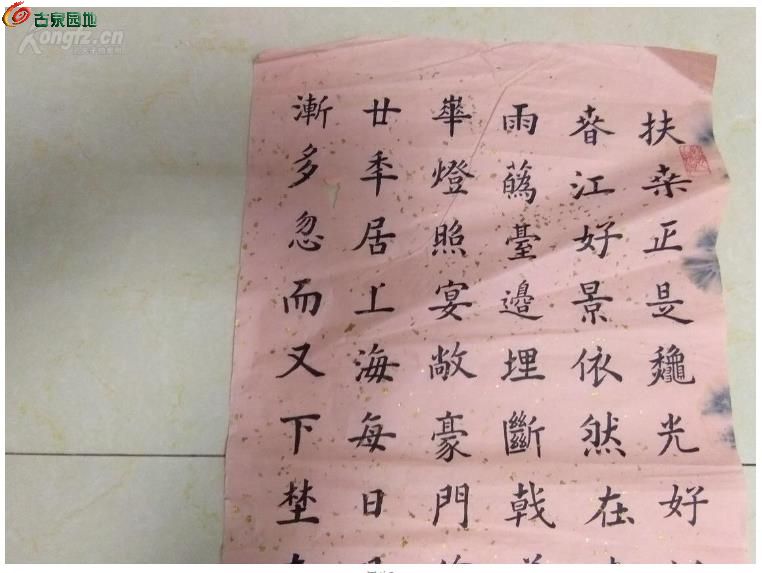 古泉园地
Kongfz.cn
扶桒正是龝光好
春江好景依然在
雨蘤臺邊埋斷戟
崋燈照宴敞豪門
廿秊居上海每日
漸多忽而又下埜